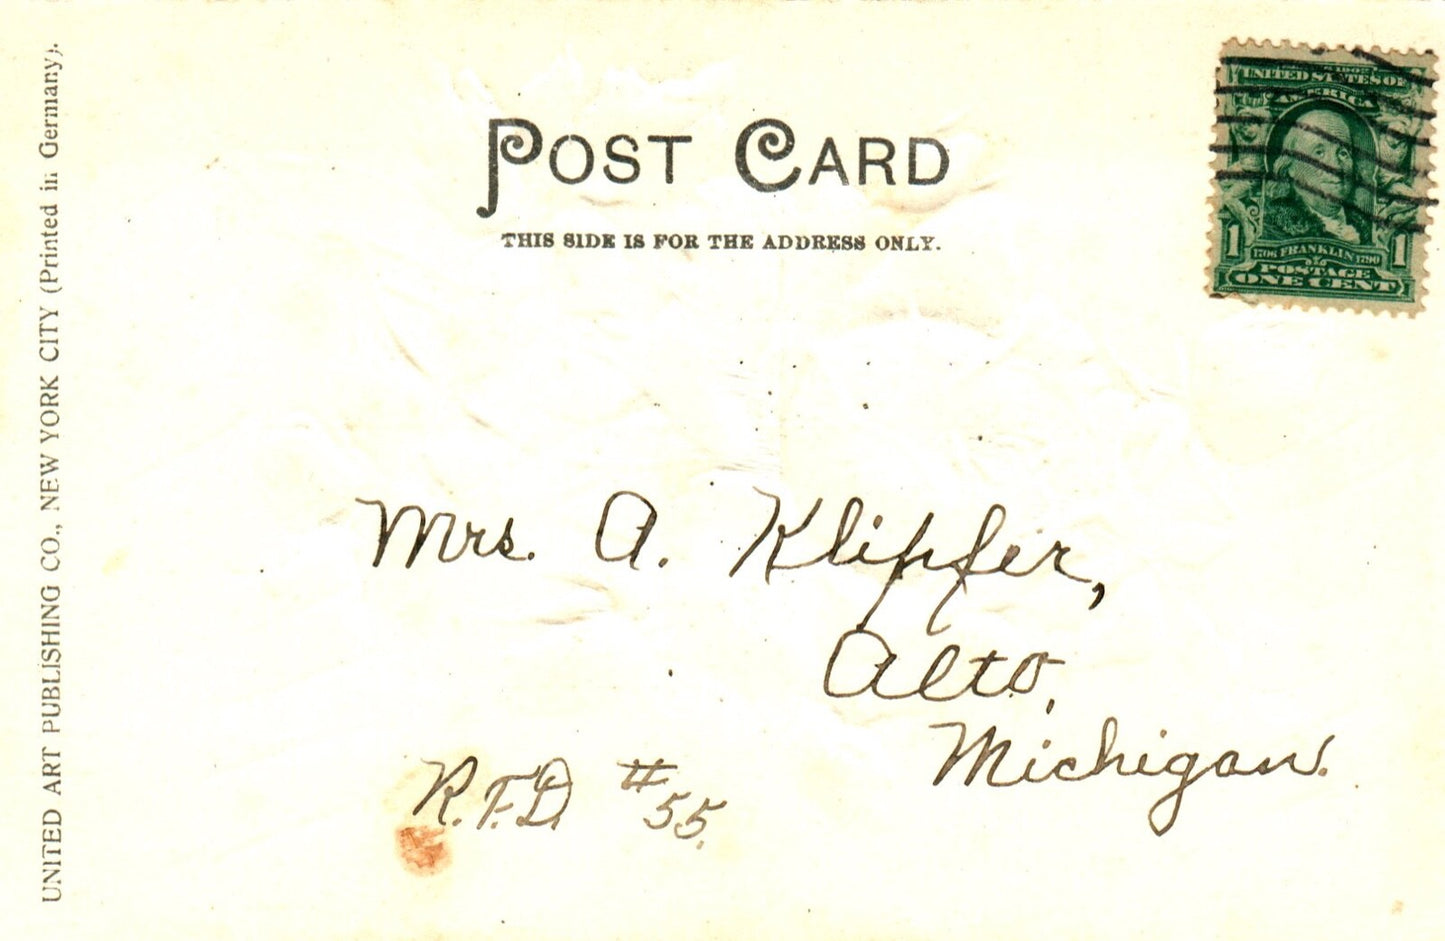 POST CARD
THIS SIDE IS FOR THE ADDRESS ONLY.
UNITED STATES OF
AMERICA
1 1706 FRANKLIN 1790 1
POSTAGE
ONE CENT
Mrs. A. Klipfer,
Alto,
Michigan.
R.F.D. #55.
UNITED ART PUBLISHING CO., NEW YORK CITY (Printed in Germany).